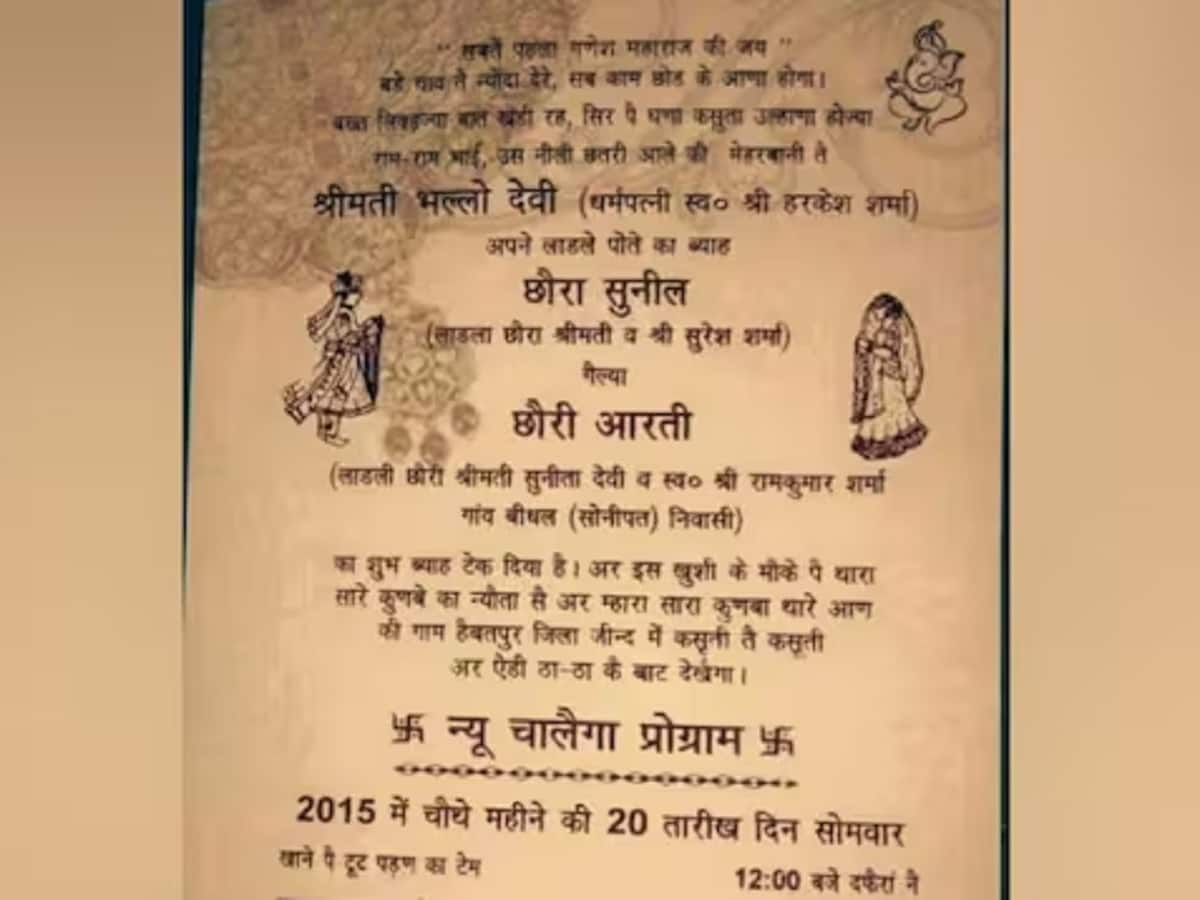 " सबतै पहला गणेश महाराज की जय "
बडे चाव तै न्योंदा देरे, सब काम छोड के आणा होगा।
बखत लिकड़ज्या बात खड़ी रह, सिर पै घणा कसुता उल्हाणा होज्या
राम-राम भाई, उस नीली छतरी आले की मेहरबानी तै
श्रीमती भल्लो देवी (धर्मपत्नी स्व० श्री हरकेश शर्मा)
अपने लाडले पोते का ब्याह
छौरा सुनील
(लाडला छौरा श्रीमती व श्री सुरेश शर्मा)
गैल्या
छौरी आरती
(लाडली छौरी श्रीमती सुनीता देवी व स्व० श्री रामकुमार शर्मा
गांव बीधल (सोनीपत) निवासी)
का शुभ ब्याह टेक दिया है। अर इस खुशी के मौके पै थारा
सारे कुणबे का न्यौता सै अर म्हारा सारा कुणबा थारे आण
की गाम हैबतपुर जिला जीन्द में कसूती तै कसूती
अर ऐडी ठा-ठा कै बाट देखैगा।
卐 न्यू चालैगा प्रोग्राम 卐
2015 में चौथे महीने की 20 तारीख दिन सोमवार
खाने पै टूट पड़ण का टेम 12:00 बजे दफैरां नै